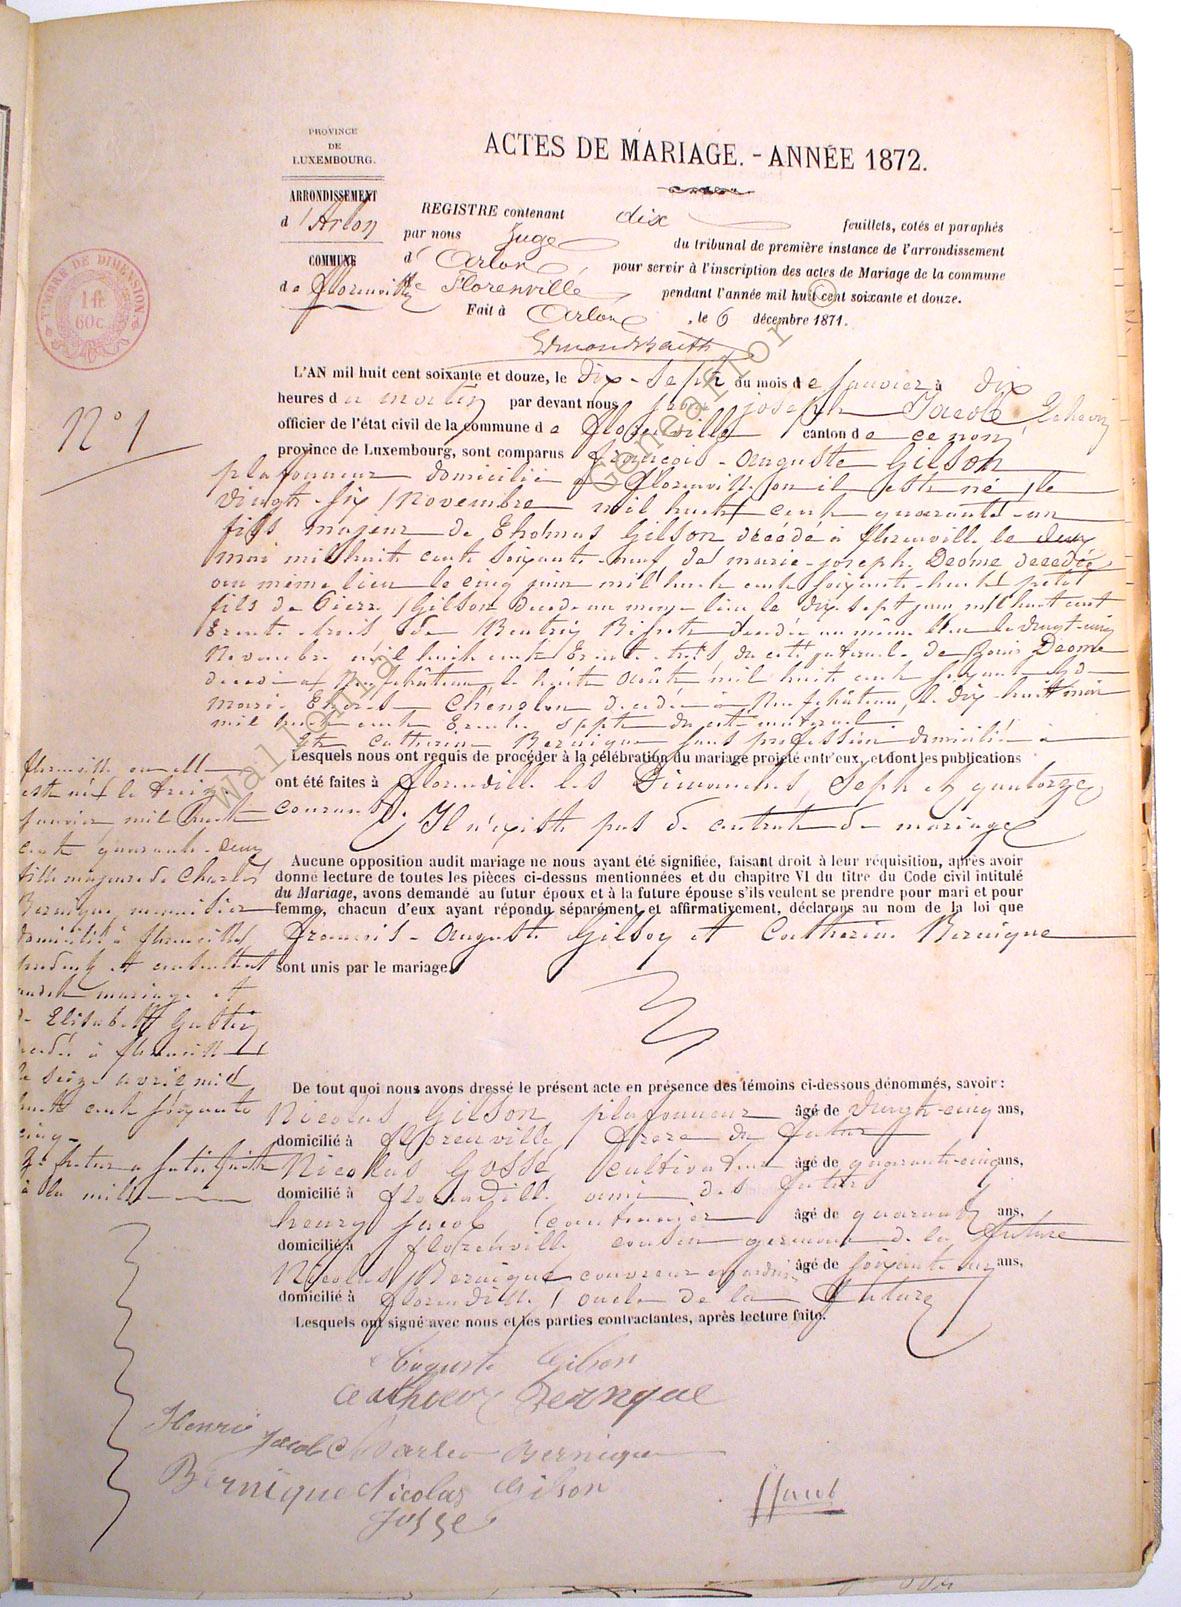 PROVINCE
DE
LUXEMBOURG.
ACTES DE MARIAGE. - ANNÉE 1872.
ARRONDISSEMENT
d'Arlon
COMMUNE
de Florenville
REGISTRE contenant dix feuillets, cotés et paraphés
par nous Juge du tribunal de première instance de l'arrondissement
d'Arlon pour servir à l'inscription des actes de Mariage de la commune
de Florenville pendant l'année mil huit cent soixante et douze.
Fait à Arlon, le 6 décembre 1871.
TIMBRE DE DIMENSION
1 fr
60c.
N° 1
L'AN mil huit cent soixante et douze, le dix-sept du mois de janvier à dix
heures du matin par devant nous joseph Jacob
officier de l'état civil de la commune de florenville canton de ce nom,
province de Luxembourg, sont comparus 1° françois-Auguste Gilson
plafonneur domicilié à florenville où il est né, le
vingt-six Novembre mil huit cent quarante-un
fils majeur de Thomas Gilson décédé à florenville le deux
mai mil huit cent soixante-neuf de marie-joseph Deome décédée
au même lieu le cinq juin mil huit cent soixante-huit petit
fils de Pierre Gilson décédé au même lieu le dix sept juin mil huit cent
trente-trois, de décédée au même lieu le vingt-cinq
Novembre mil huit cent trente-trois du coté paternel de Louis Deome
décédé à Neufchâteau, le huit Août mil huit cent
marie décédée à Neufchâteau, le dix-huit mai
mil huit cent trente sept du coté maternel.
2° catherine Bernique sans profession domiciliée à
florenville ou elle
est née le treize
janvier mil huit
cent quarante-deux
fille majeure de Charles
Bernique, menuisier
domicilié à florenville
présent et consentant
audit mariage et
de Elisabeth
décédée à florenville
le seize avril mil
huit cent soixante
cinq-
à la milice
Lesquels nous ont requis de procéder à la célébration du mariage projeté entr'eux, et dont les publications
ont été faites à florenville les Dimanches, sept et quatorze
courant. Il n'existe pas de contrat de mariage
Aucune opposition audit mariage ne nous ayant été signifiée, faisant droit à leur réquisition, après avoir
donné lecture de toutes les pièces ci-dessus mentionnées et du chapitre VI du titre du Code civil intitulé
du Mariage, avons demandé au futur époux et à la future épouse s'ils veulent se prendre pour mari et pour
femme, chacun d'eux ayant répondu séparément et affirmativement, déclarons au nom de la loi que
françois-Auguste Gilson et Catherine Bernique
sont unis par le mariage.
De tout quoi nous avons dressé le présent acte en présence des témoins ci-dessous dénommés, savoir :
Nicolas Gilson plafonneur âgé de vingt-cinq ans,
domicilié à florenville, frere du futur
Nicolas Gosse cultivateur âgé de quarante-cinq ans,
domicilié à florenville ami des futurs
henry jacob cantonnier âgé de quarante ans,
domicilié à florenville cousin germain de la future
Nicolas Bernique couvreur en ardoises âgé de soixante ans,
domicilié à florenville, oncle de la future
Lesquels ont signé avec nous et les parties contractantes, après lecture faite.
Auguste Gilson
Catherine Bernique
Henri
Jacob Charles Bernique
Bernique Nicolas Gilson
Gosse
J Jacob
wallonia Geneaflor ©